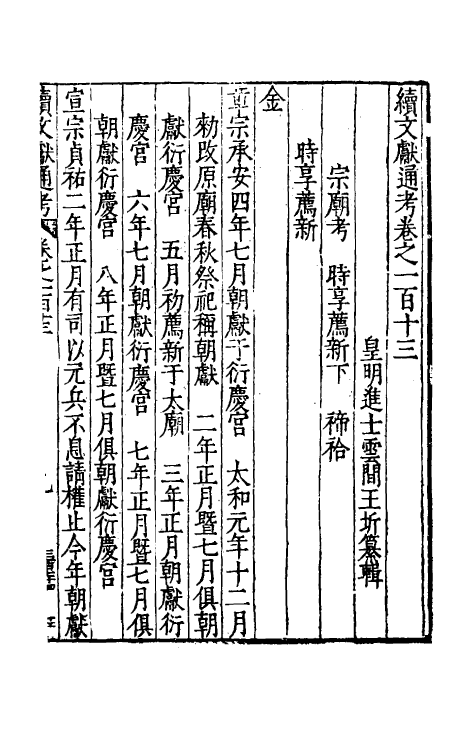 續文獻通考卷之一百十三
皇明進士雲間王圻纂輯
宗廟考　時享薦新下　禘祫
時享薦新
金
章宗承安四年七月朝獻于衍慶宮　太和元年十二月
勑改原廟春秋祭祀稱朝獻　二年正月暨七月俱朝
獻衍慶宮　五月初薦新于太廟　三年正月朝獻衍
慶宮　六年七月朝獻衍慶宮　七年正月暨七月俱
朝獻衍慶宮　八年正月暨七月俱朝獻衍慶宮
宣宗貞祐二年正月有司以元兵不息請權止今年朝獻
續文獻通考　卷之一百十三